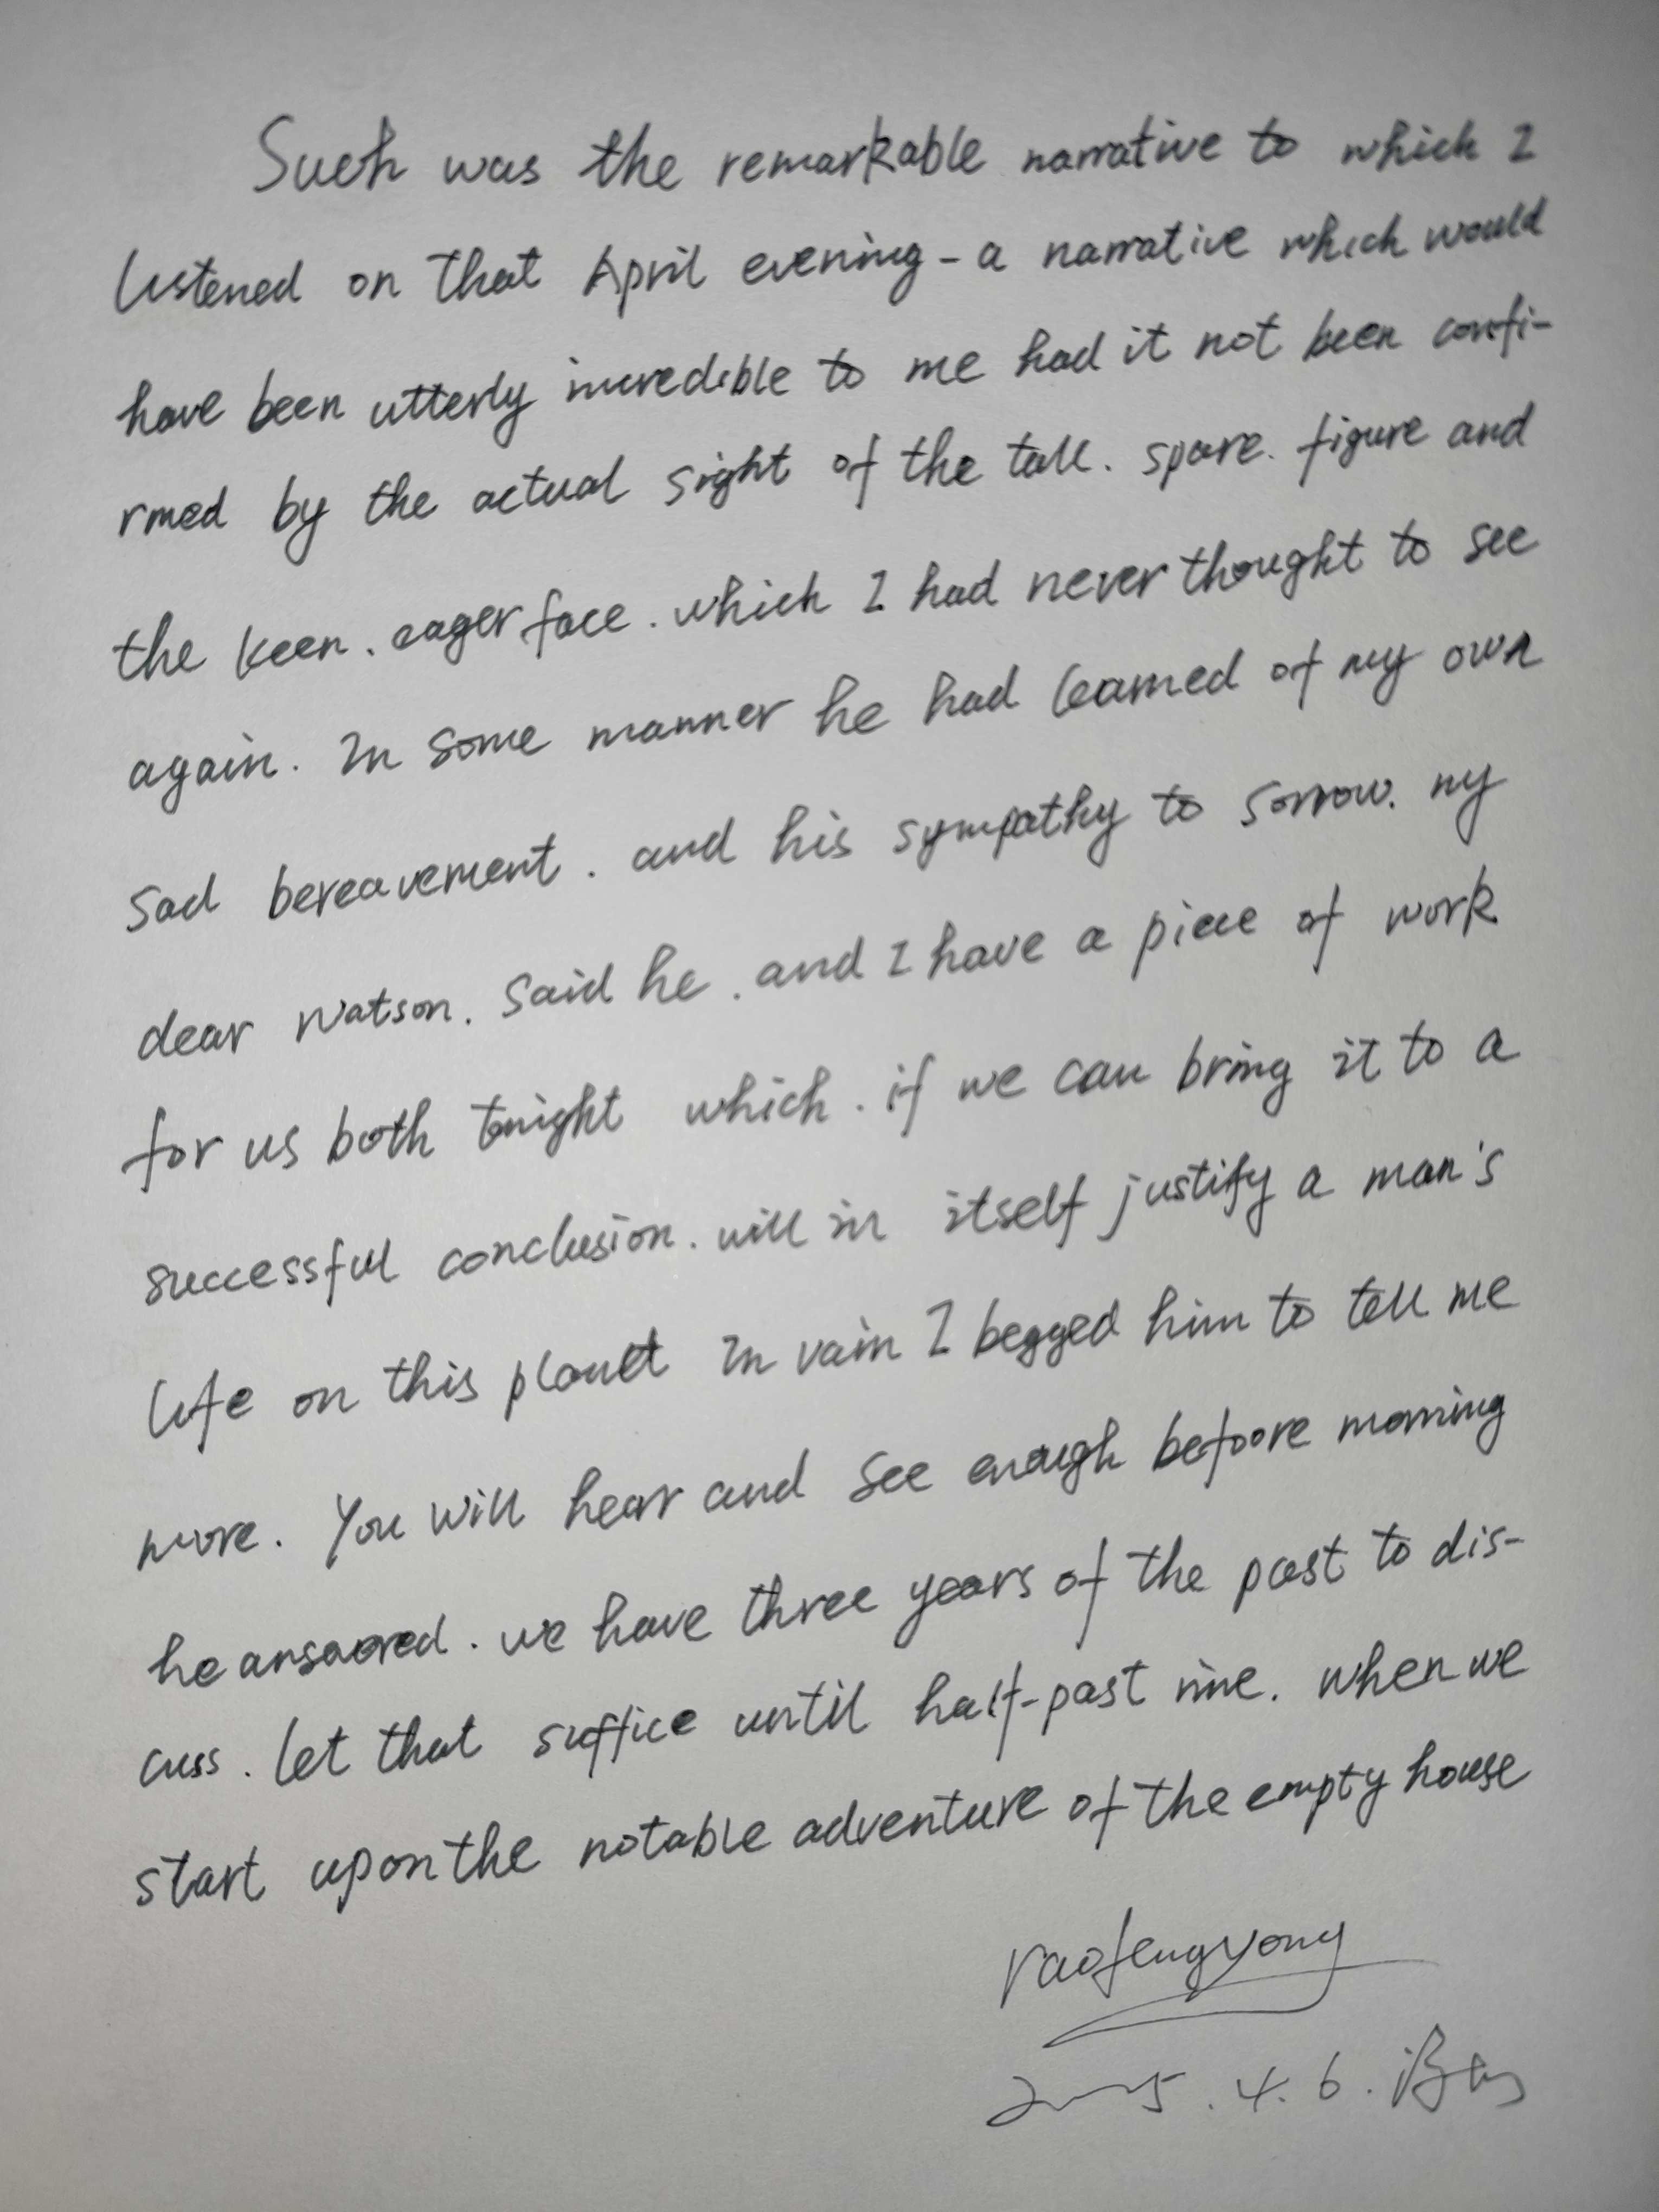 Such was the remarkable narrative to which I
listened on that April evening - a narrative which would
have been utterly incredible to me had it not been confi-
rmed by the actual sight of the tall. spare. figure and
the keen. eager face. which I had never thought to see
again. In some manner he had learned of my own
sad bereavement. and his sympathy to sorrow. my
dear Watson. said he. and I have a piece of work
for us both tonight which. if we can bring it to a
successful conclusion. will in itself justify a man's
life on this planet In vain I begged him to tell me
more. You will hear and see enough befoore morning
he answered. we have three years of the past to dis-
cuss. let that suffice until half-past nine. when we
start upon the notable adventure of the empty house
raofengyong
2005.4.6.